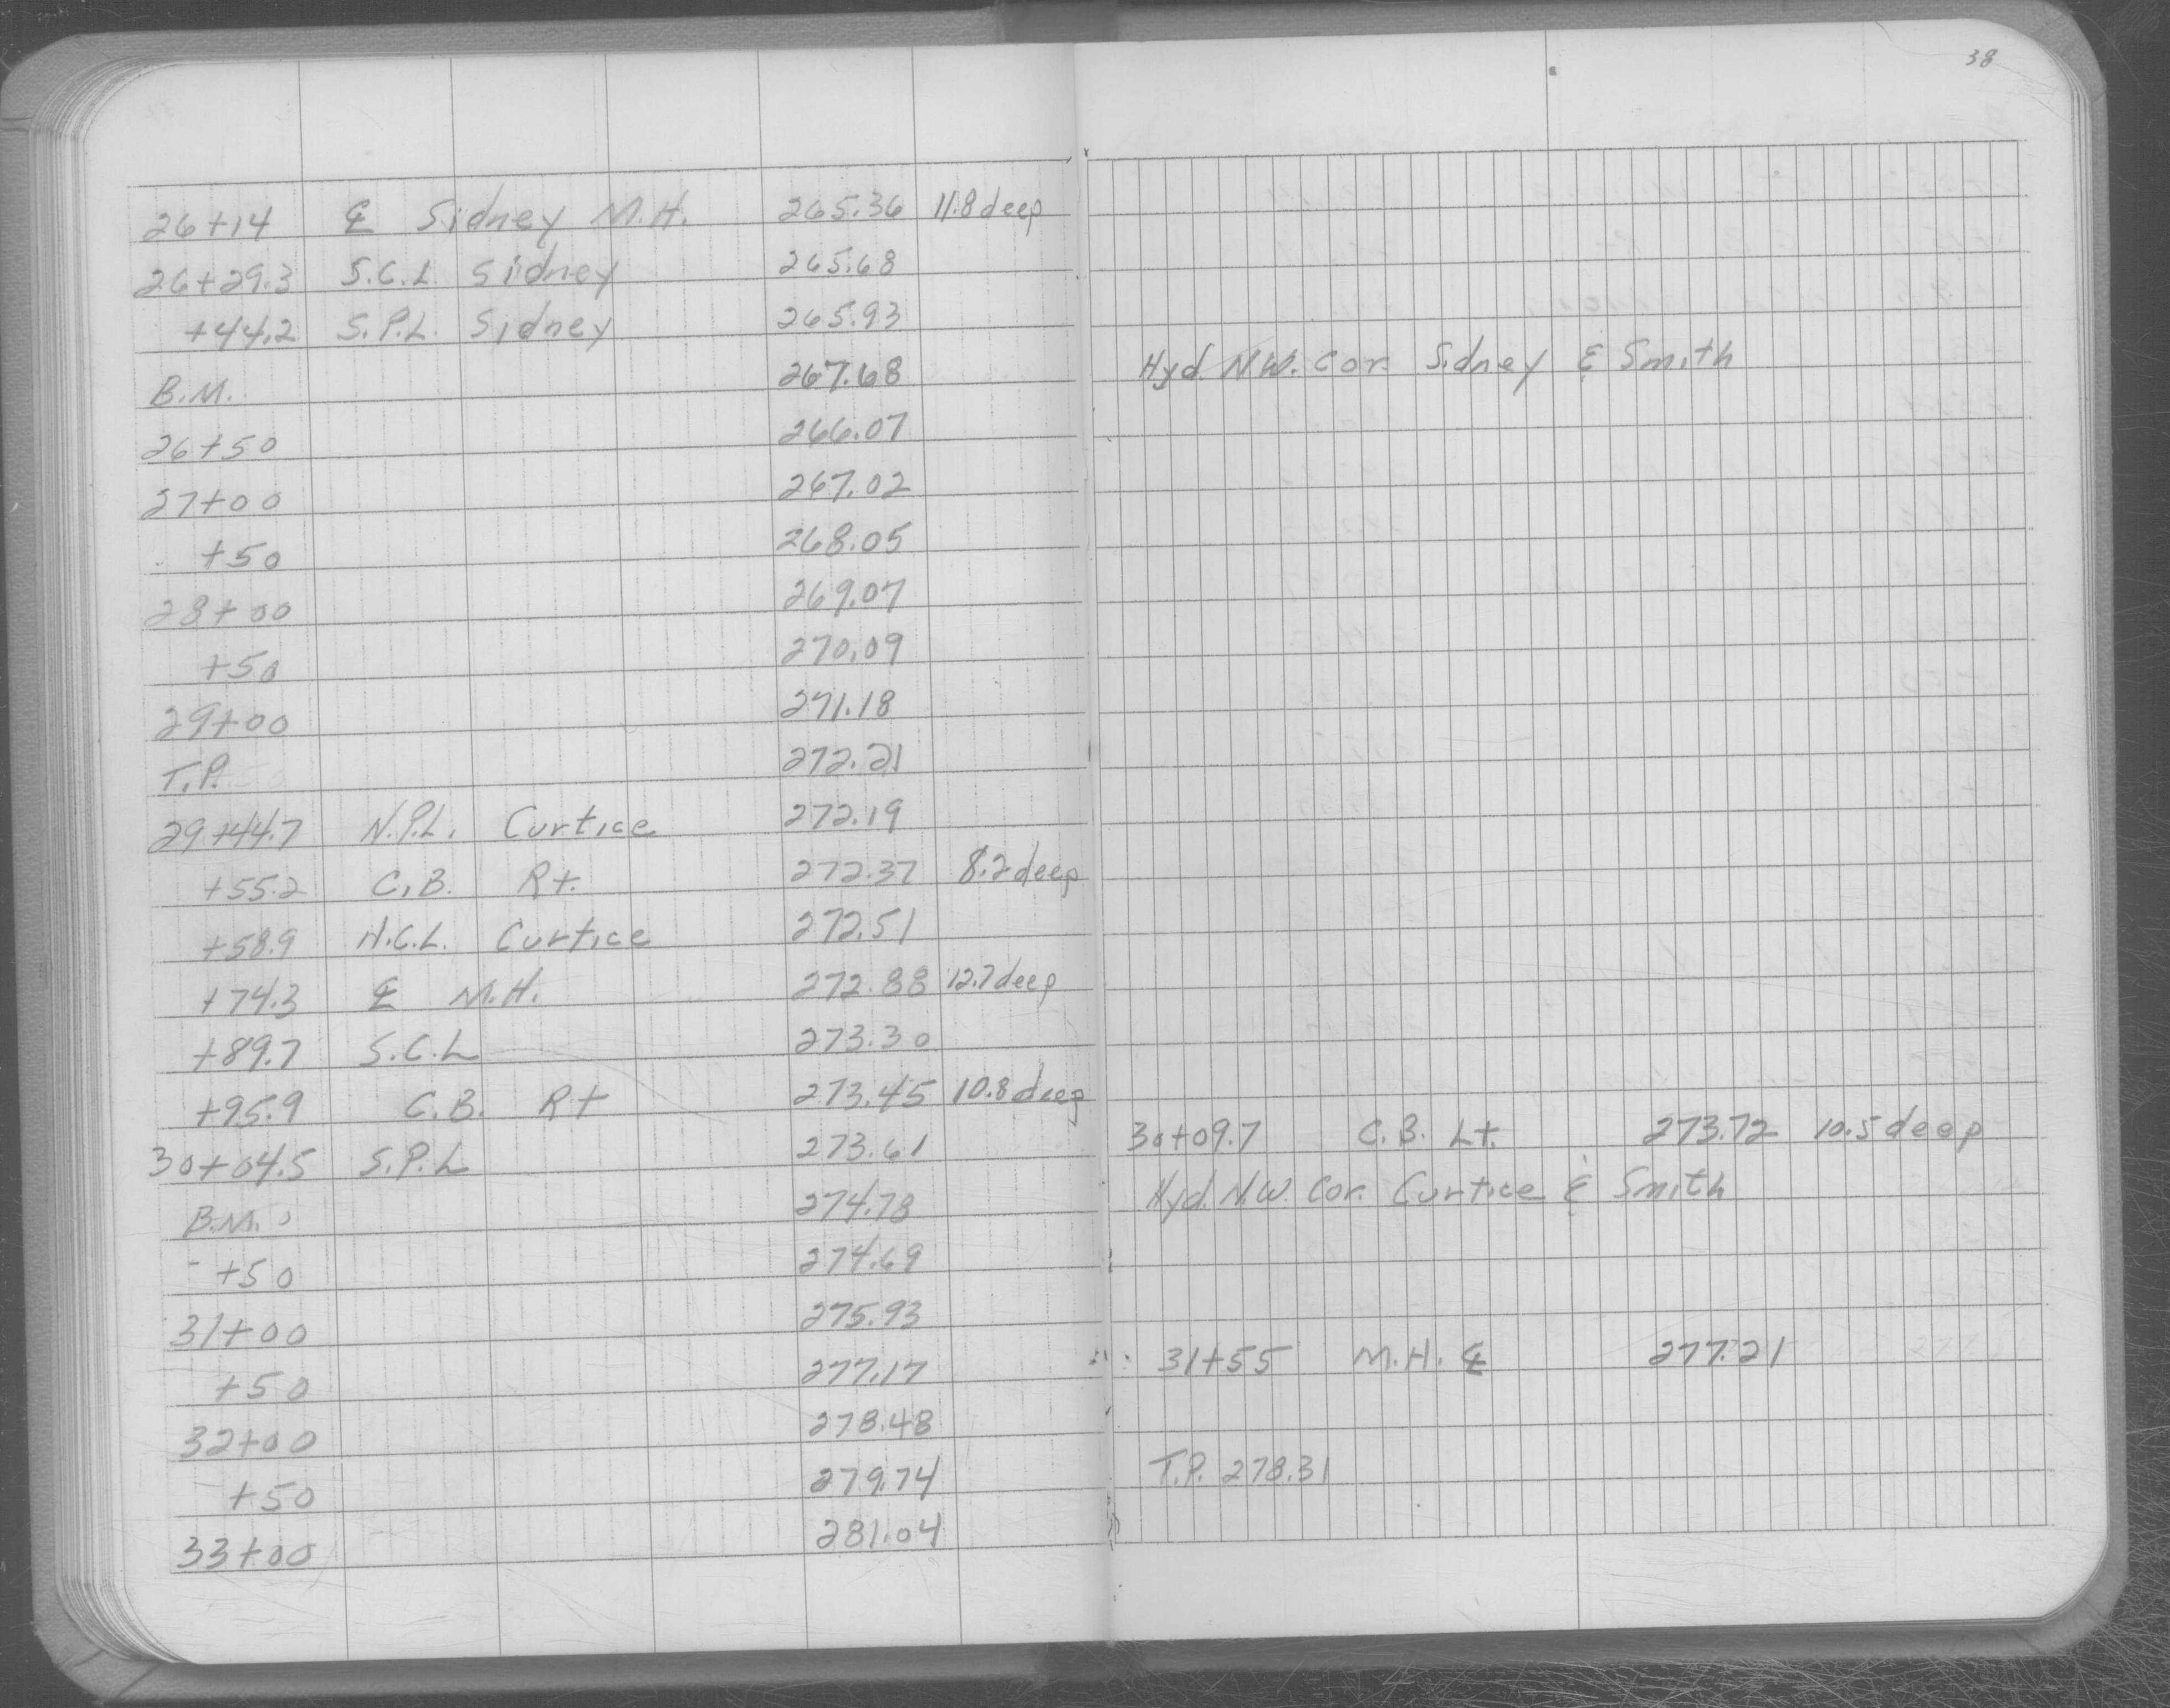 38
26+14 ℄ Sidney M.H. 265.36 11.8 deep
26+29.3 S.C.L Sidney 265.68
+44.2 S.P.L. Sidney 265.93
B.M. 267.68 Hyd. N.W. Cor. Sidney & Smith
26+50 266.07
27+00 267.02
+50 268.05
28+00 269.07
+50 270.09
29+00 271.18
T.P. 272.21
29+44.7 N.P.L. Curtice 272.19
+55.2 C.B. Rt. 272.37 8.2 deep
+58.9 N.C.L. Curtice 272.51
+74.3 ℄ M.H. 272.88 12.7 deep
+89.7 S.C.L 273.30
+95.9 C.B. Rt 273.45 10.8 deep
30+04.5 S.P.L 273.61 30+09.7 C.B. Lt. 273.72 10.5 deep
B.M. 274.78 Hyd. N.W. Cor. Curtice & Smith
+50 274.69
31+00 275.93
+50 277.17 31+55 M.H. ℄ 277.21
32+00 278.48
+50 279.74 T.P. 278.31
33+00 281.04